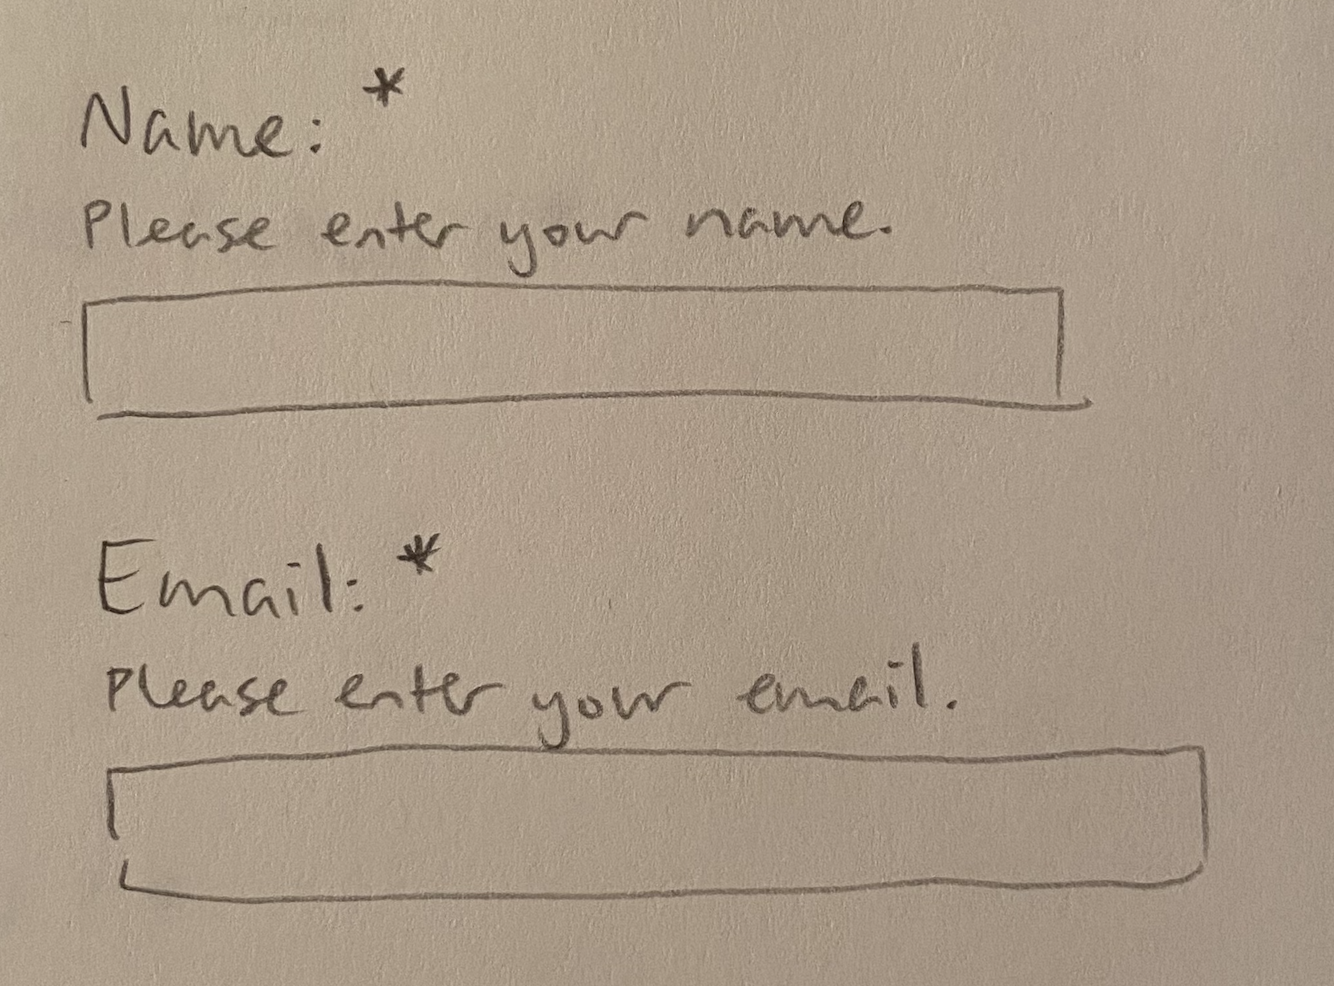 Name: *
Please enter your name.
Email: *
Please enter your email.